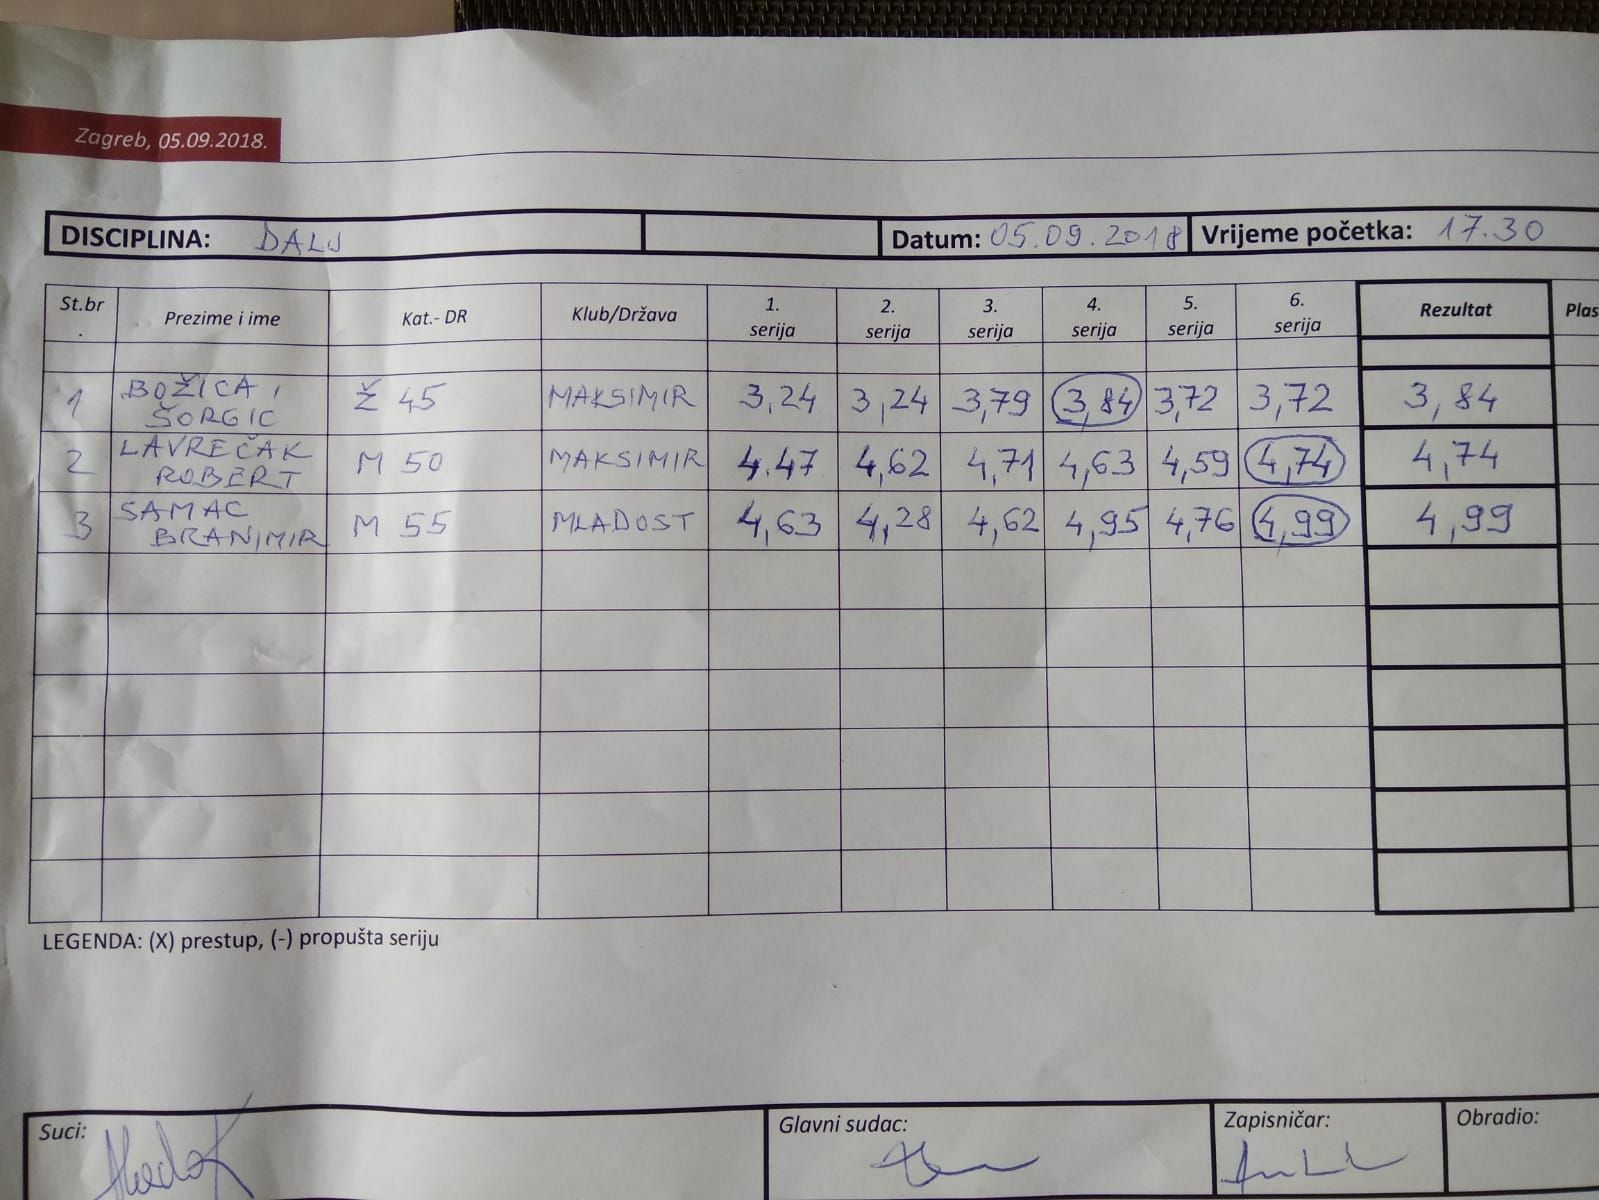 Zagreb, 05.09.2018.
DISCIPLINA: DALJ Datum: 05.09.2018 Vrijeme početka: 17.30
St.br. Prezime i ime Kat.- DR Klub/Država 1. serija 2. serija 3. serija 4. serija 5. serija 6. serija Rezultat Plas
1 BOŽICA, ŠORGIC Ž 45 MAKSIMIR 3,24 3,24 3,79 3,84 3,72 3,72 3,84
2 LAVREČAK ROBERT M 50 MAKSIMIR 4.47 4,62 4,71 4,63 4,59 4,74 4,74
3 SAMAC BRANIMIR M 55 MLADOST 4,63 4,28 4,62 4,95 4,76 4,99 4,99
LEGENDA: (X) prestup, (-) propušta seriju
Suci: Glavni sudac: Zapisničar: Obradio: